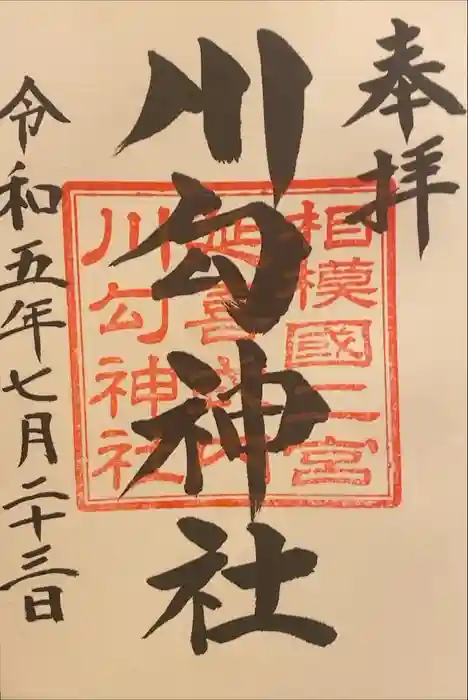 奉拝
川勾神社
令和五年七月二十三日
相模國二宮
延喜式内
川勾神社